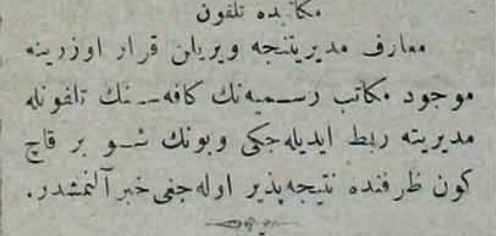 مكاتبده تلفون
معارف مديريتنجه ويريلن قرار اوزرينه
موجود مكاتب رسميه‌نك كافه‌سنك تلفونله
مديريته ربط ايديله‌جكى وبونك شو بر قاچ
كون ظرفنده نتيجه‌پذير اوله‌جغى خبر آلنمشدر.